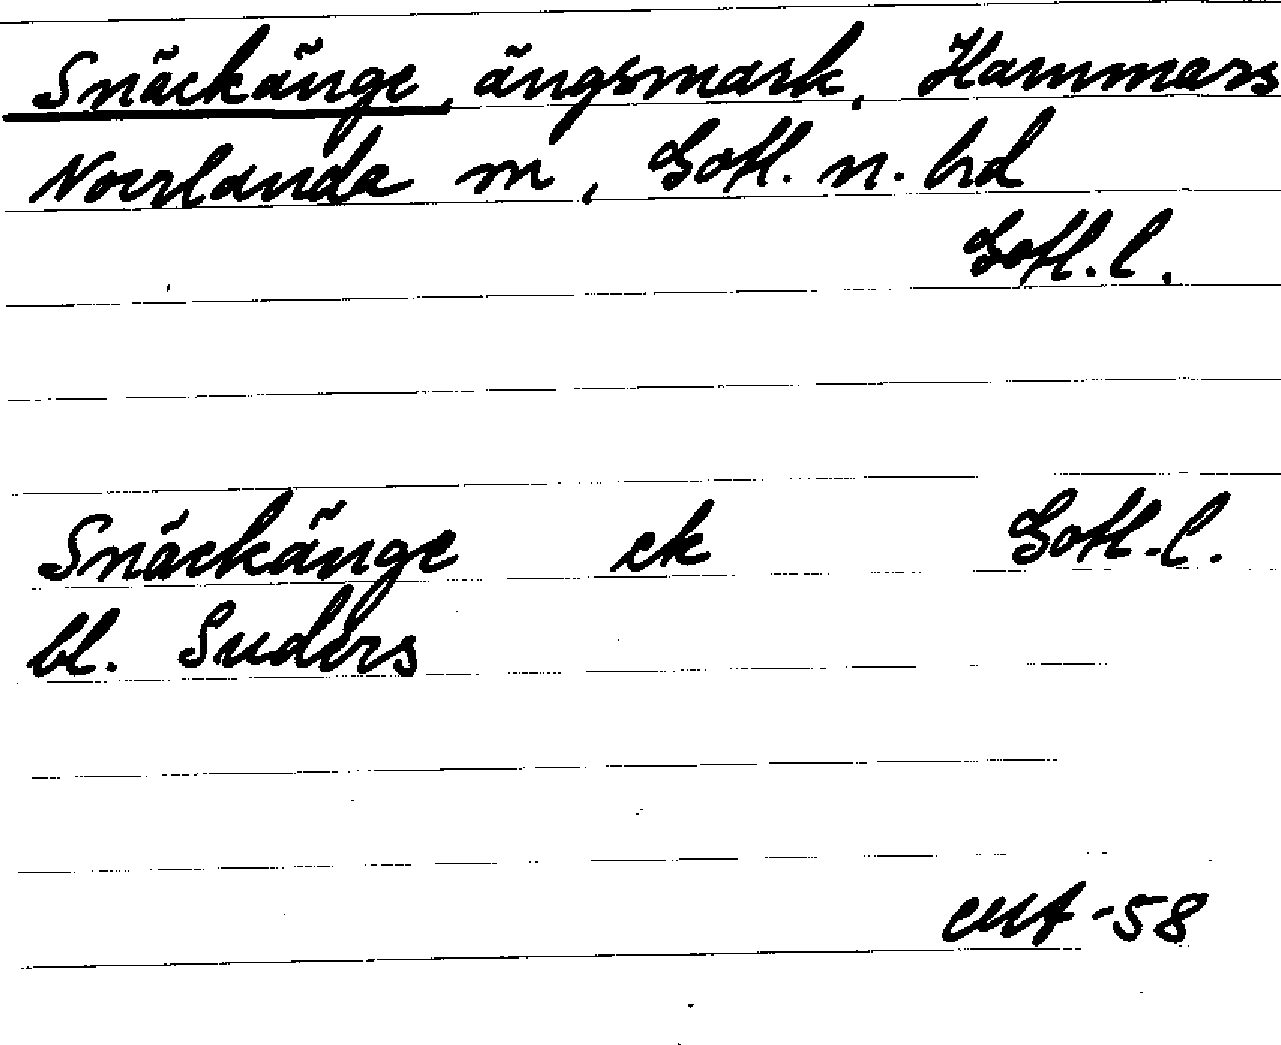 Snäckänge, ängsmark, Hammars
Norrlanda sn, Gotl. n. hd
Gotl. l.
Snäckänge ek Gotl. l.
bl. Suders
-58